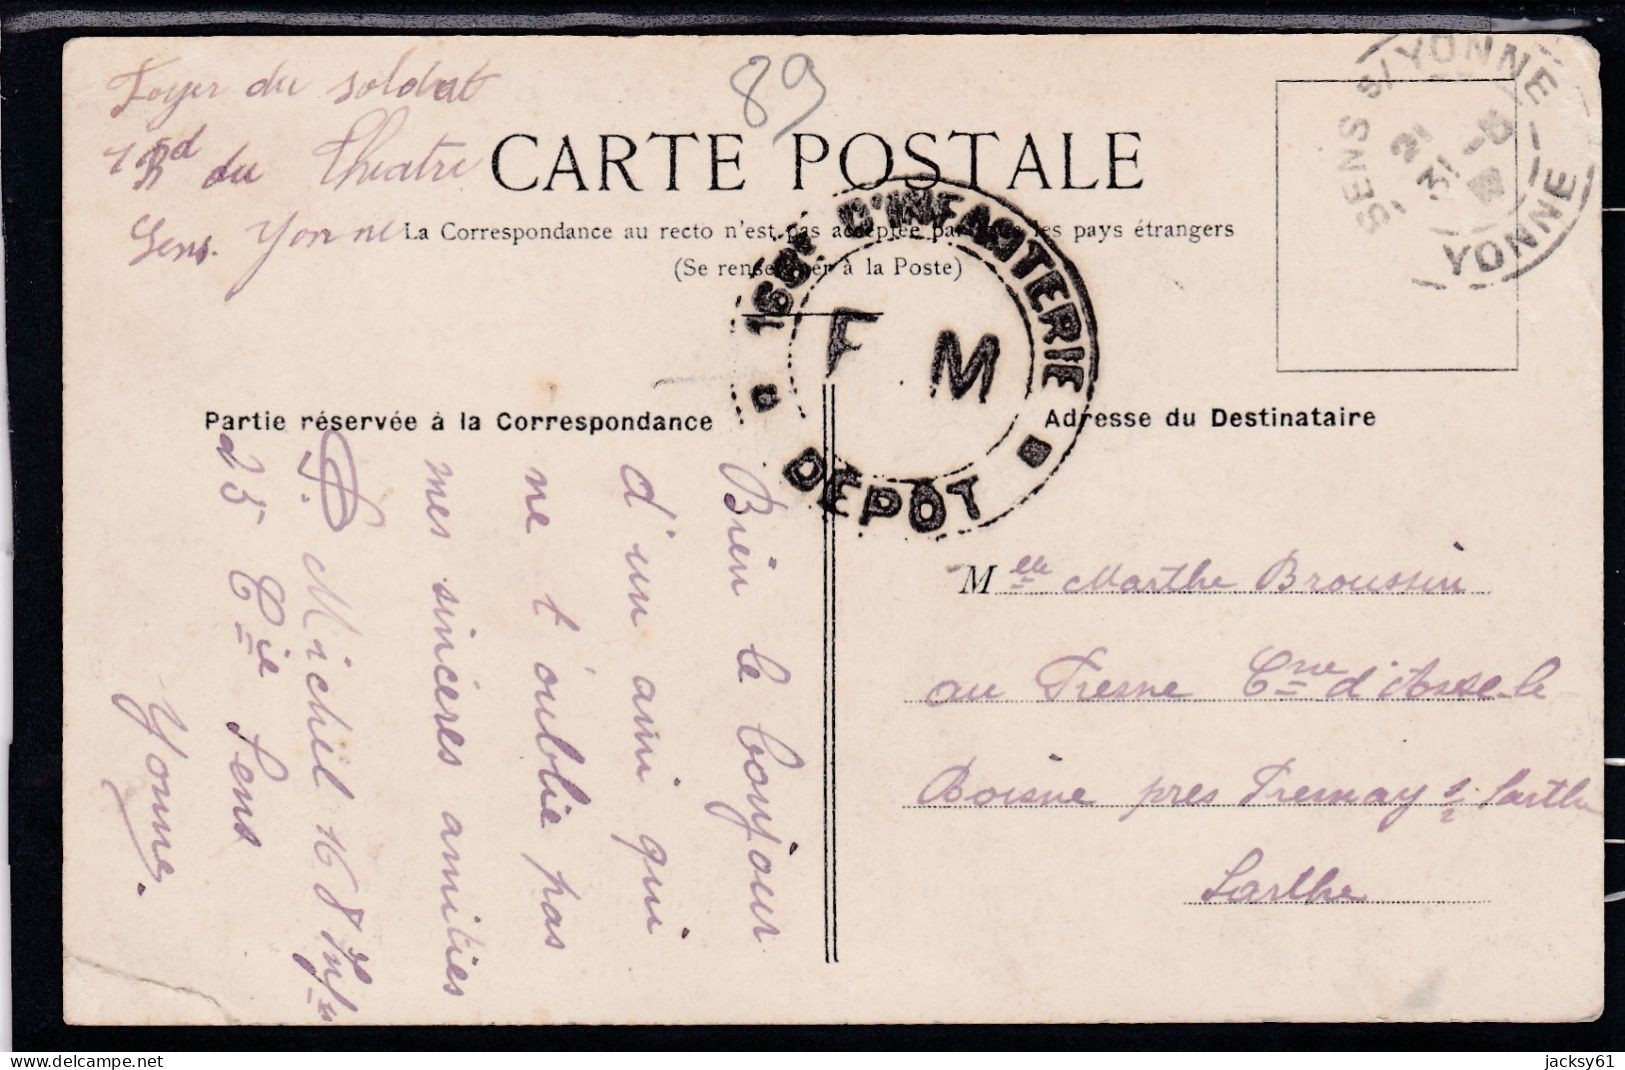 89
Foyer du soldat
1 Bd du Theatre
Sens. Yonne
CARTE POSTALE
La Correspondance au recto n'est pas acceptée par tous les pays étrangers
(Se renseigner à la Poste)
SENS S/YONNE
21
31 -5
YONNE
168e D'INFANTERIE
F M
DÉPÔT
Partie réservée à la Correspondance
Bien le bonjour
d'un ami qui
ne t'oublie pas
mes sincères amitiés
P. Michel 168 Inf
25 Cie Sens
Yonne.
Adresse du Destinataire
Melle Marthe Broussin
au Fresne Cne d'Assé-le
Boisne près Fresnay s/ Sarthe
Sarthe
delcampe.net
jacksy61